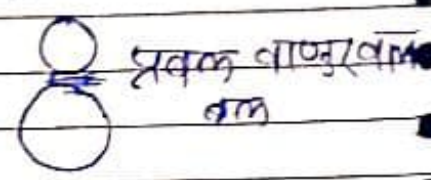 प्रबल वाण्डरवाल
बल